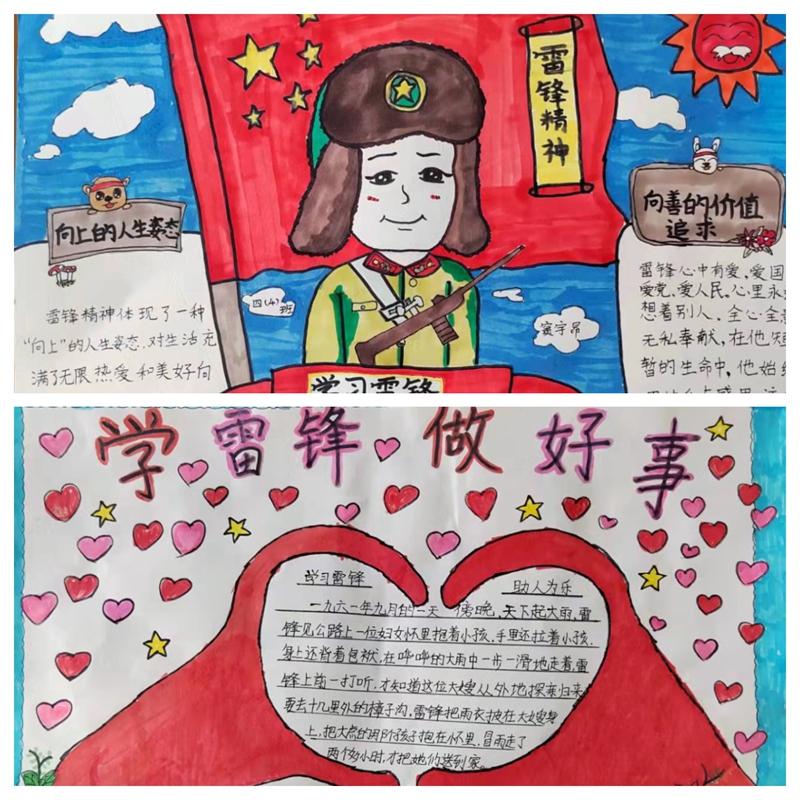 雷锋精神
向上的人生姿态
向善的价值
追求
雷锋精神体现了一种
“向上”的人生姿态.对生活充
满了无限热爱和美好向
四(4)
班
窦宇昂
雷锋心中有爱、爱国
爱党、爱人民、心里永
想着别人、全心全意
无私奉献,在他短
暂的生命中,他始终
学习雷锋
学雷锋做好事
学习雷锋 助人为乐
一九六一年九月的一天 傍晚,天下起大雨,雷
锋见公路上一位妇女怀里抱着小孩,手里还拉着小孩,
身上还背着包袱,在哗哗的大雨中一步一滑地走着雷
锋上前一打听,才知道这位大嫂从外地探亲归来
要去十几里外的樟子沟,雷锋把雨衣披在大嫂身
上,把大点的那个孩子抱在怀里,冒雨走了
两个多小时,才把她们送到家。